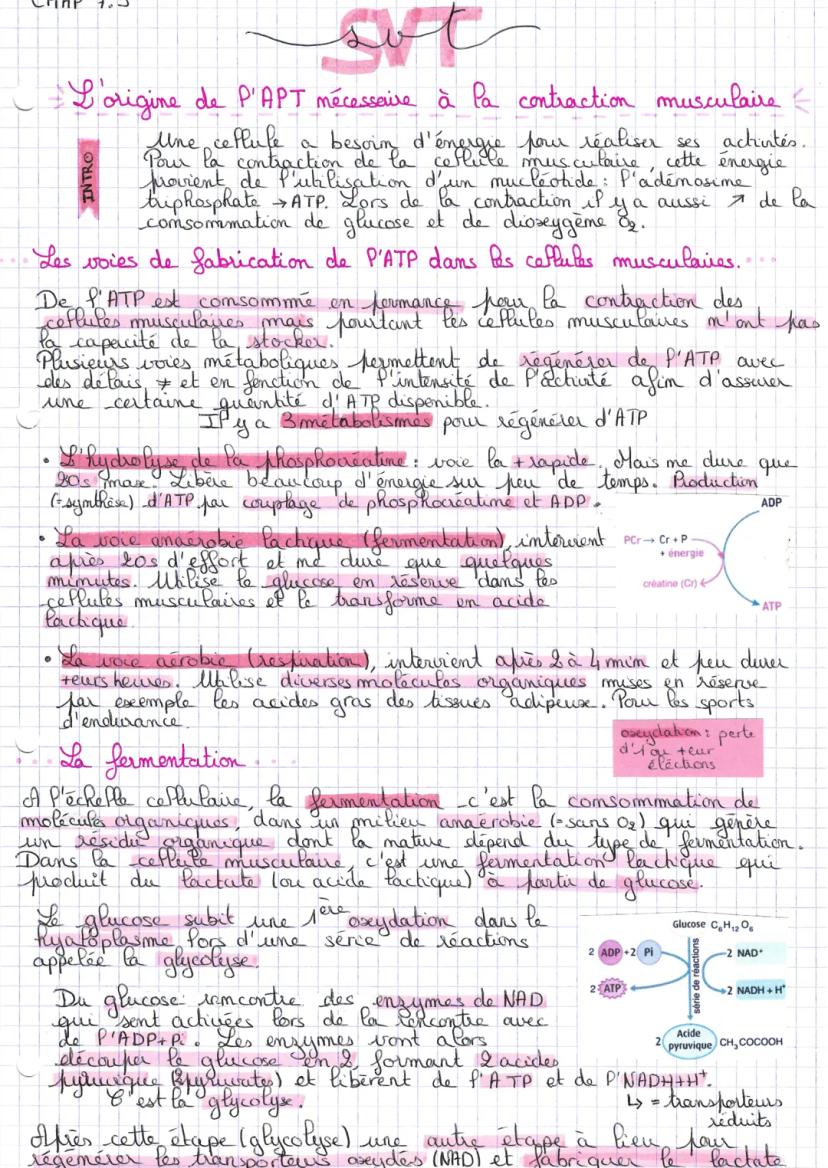 CHAP 7.3
SVT
svt
L'origine de l'APT nécessaire à la contraction musculaire
INTRO
Une cellule a besoin d'énergie pour réaliser ses activités.
Pour la contraction de la cellule musculaire, cette énergie
provient de l'utilisation d'un nucléotide : l'adénosine
triphosphate → ATP. Lors de la contraction il y a aussi ↗ de la
consommation de glucose et de dioxygène O₂.
Les voies de fabrication de l'ATP dans les cellules musculaires.
De l'ATP est consommé en permance pour la contraction des
cellules musculaires mais pourtant les cellules musculaires n'ont pas
la capacité de la stocker.
Plusieurs voies métaboliques permettent de régénérer de l'ATP avec
des délais ≠ et en fonction de l'intensité de l'activité afin d'assurer
une certaine quantité d'ATP disponible.
Il y a 3 métabolismes pour régénérer d'ATP
• L'hydrolyse de la phosphocréatine : voie la + rapide. Mais ne dure que
20s max. Libère beaucoup d'énergie sur peu de temps. Production
(= synthèse) d'ATP par couplage de phosphocréatine et ADP.
• La voie anaérobie lactique (fermentation), intervient
après 20s d'effort et ne dure que quelques
minutes. Utilise le glucose en réserve dans les
cellules musculaires et le transforme en acide
lactique.
ADP
PCr → Cr + P
+ énergie
créatine (Cr)
ATP
• La voie aérobie (respiration), intervient après 2 à 4 min et peu durer
+eurs heures. Utilise diverses molécules organiques mises en réserve
par exemple les acides gras des tissues adipeux. Pour les sports
d'endurance.
oxydation : perte
d'1 ou +eur
éléctions
La fermentation
A l'échelle cellulaire, la fermentation c'est la consommation de
molécules organiques, dans un milieu anaérobie (= sans O₂) qui génère
un résidu organique dont la nature dépend du type de fermentation.
Dans la cellule musculaire, c'est une fermentation lactique qui
produit du lactate (ou acide lactique) à partir de glucose.
Le glucose subit une 1ère oxydation dans le
hyaloplasme lors d'une série de réactions
appelée la glycolyse.
Du glucose rencontre des enzymes de NAD
qui sont activées lors de la rencontre avec
de l'ADP+Pi. Les enzymes vont alors
découper le glucose en 2, formant 2 acides
pyruvique (2 pyruvates) et libèrent de l'ATP et de l'NADH+H⁺.
C'est la glycolyse.
↳ = transporteurs
réduits
Glucose C₆H₁₂O₆
2 ADP + 2 Pi
2 NAD⁺
série de réactions
2 ATP
2 NADH + H⁺
2 Acide pyruvique CH₃COCOOH
Après cette étape (glycolyse) une autre étape à lieu pour
régénérer les transporteurs oxydés (NAD) et fabriquer le lactate